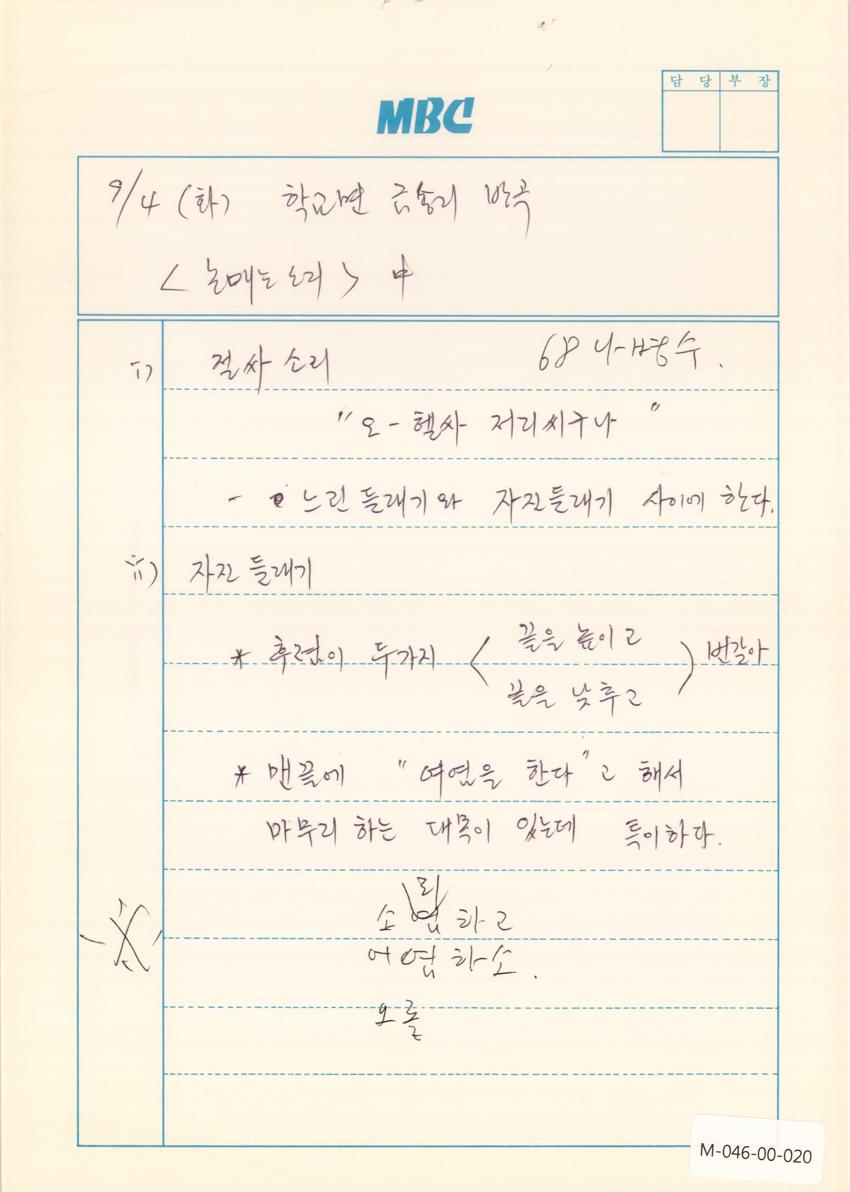 담 당 부 장
MBC
9/4 (화) 학교면 금송리 반곡
<논매는소리> 中
i) 절싸소리 68 나병수.
"오-헬싸 저리씨구나"
- 느린 들래기와 자진들래기 사이에 한다.
ii) 자진 들래기
* 후렴이 두가지 < 끝을 높이고
끝을 낮추고 ) 번갈아
* 맨끝에 "여엽을 한다"고 해서
마무리 하는 대목이 있는데 특이하다.
리
소엽하고
어엽하소.
오롤
M-046-00-020